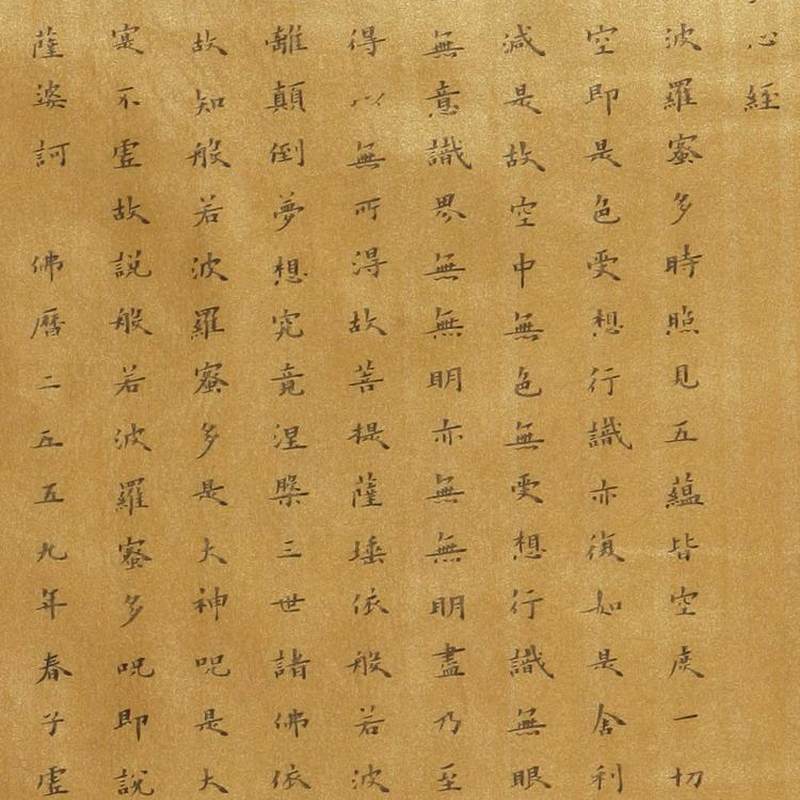 心經
波羅蜜多時照見五蘊皆空度一切
空即是色受想行識亦復如是舍利
減是故空中無色無受想行識無眼
無意識界無無明亦無無明盡乃至
得以無所得故菩提薩埵依般若波
離顛倒夢想究竟涅槃三世諸佛依
故知般若波羅蜜多是大神呪是大
寔不虛故說般若波羅蜜多呪即說
薩婆訶 佛曆二五五九年春子虛